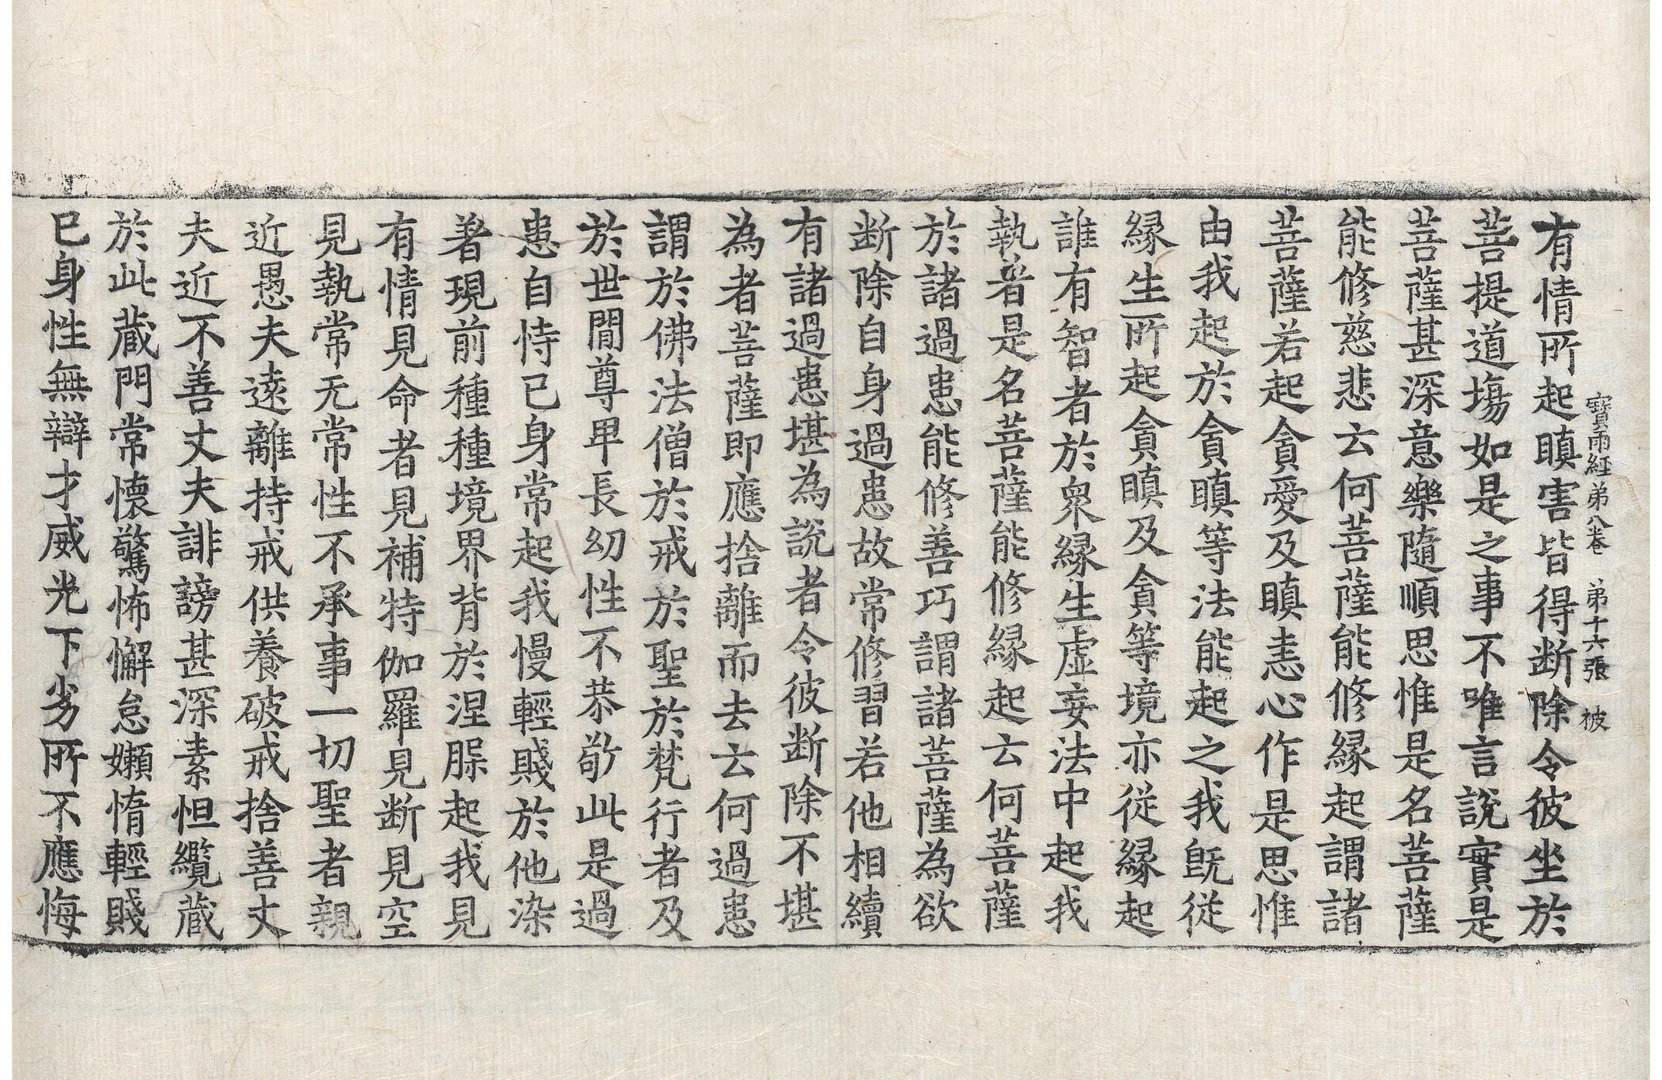 寶雨経苐八卷 苐十六張 被
有情所起瞋害皆得断除令彼坐於
菩提道場如是之事不唯言說實是
菩薩甚深意樂隨順思惟是名菩薩
能修慈悲云何菩薩能修縁起謂諸
菩薩若起貪愛及瞋恚心作是思惟
由我起於貪瞋等法能起之我旣従
縁生所起貪瞋及貪等境亦従縁起
誰有智者於衆縁生虛妄法中起我
執者是名菩薩能修縁起云何菩薩
於諸過患能修善巧謂諸菩薩為欲
断除自身過患故常修習若他相續
有諸過患堪為說者令彼断除不堪
為者菩薩即應捨離而去云何過患
謂於佛法僧於戒於聖於梵行者及
於世間尊卑長幼性不恭敬此是過
患自恃已身常起我慢輕賤於他染
著現前種種境界背於涅槃起我見
有情見命者見補特伽羅見断見空
見執常无常性不承事一切聖者親
近愚夫遠離持戒供養破戒捨善丈
夫近不善丈夫誹謗甚深素怛纜藏
於此藏門常懷驚怖懈怠嬾惰輕賤
已身性無辯才威光下劣所不應悔